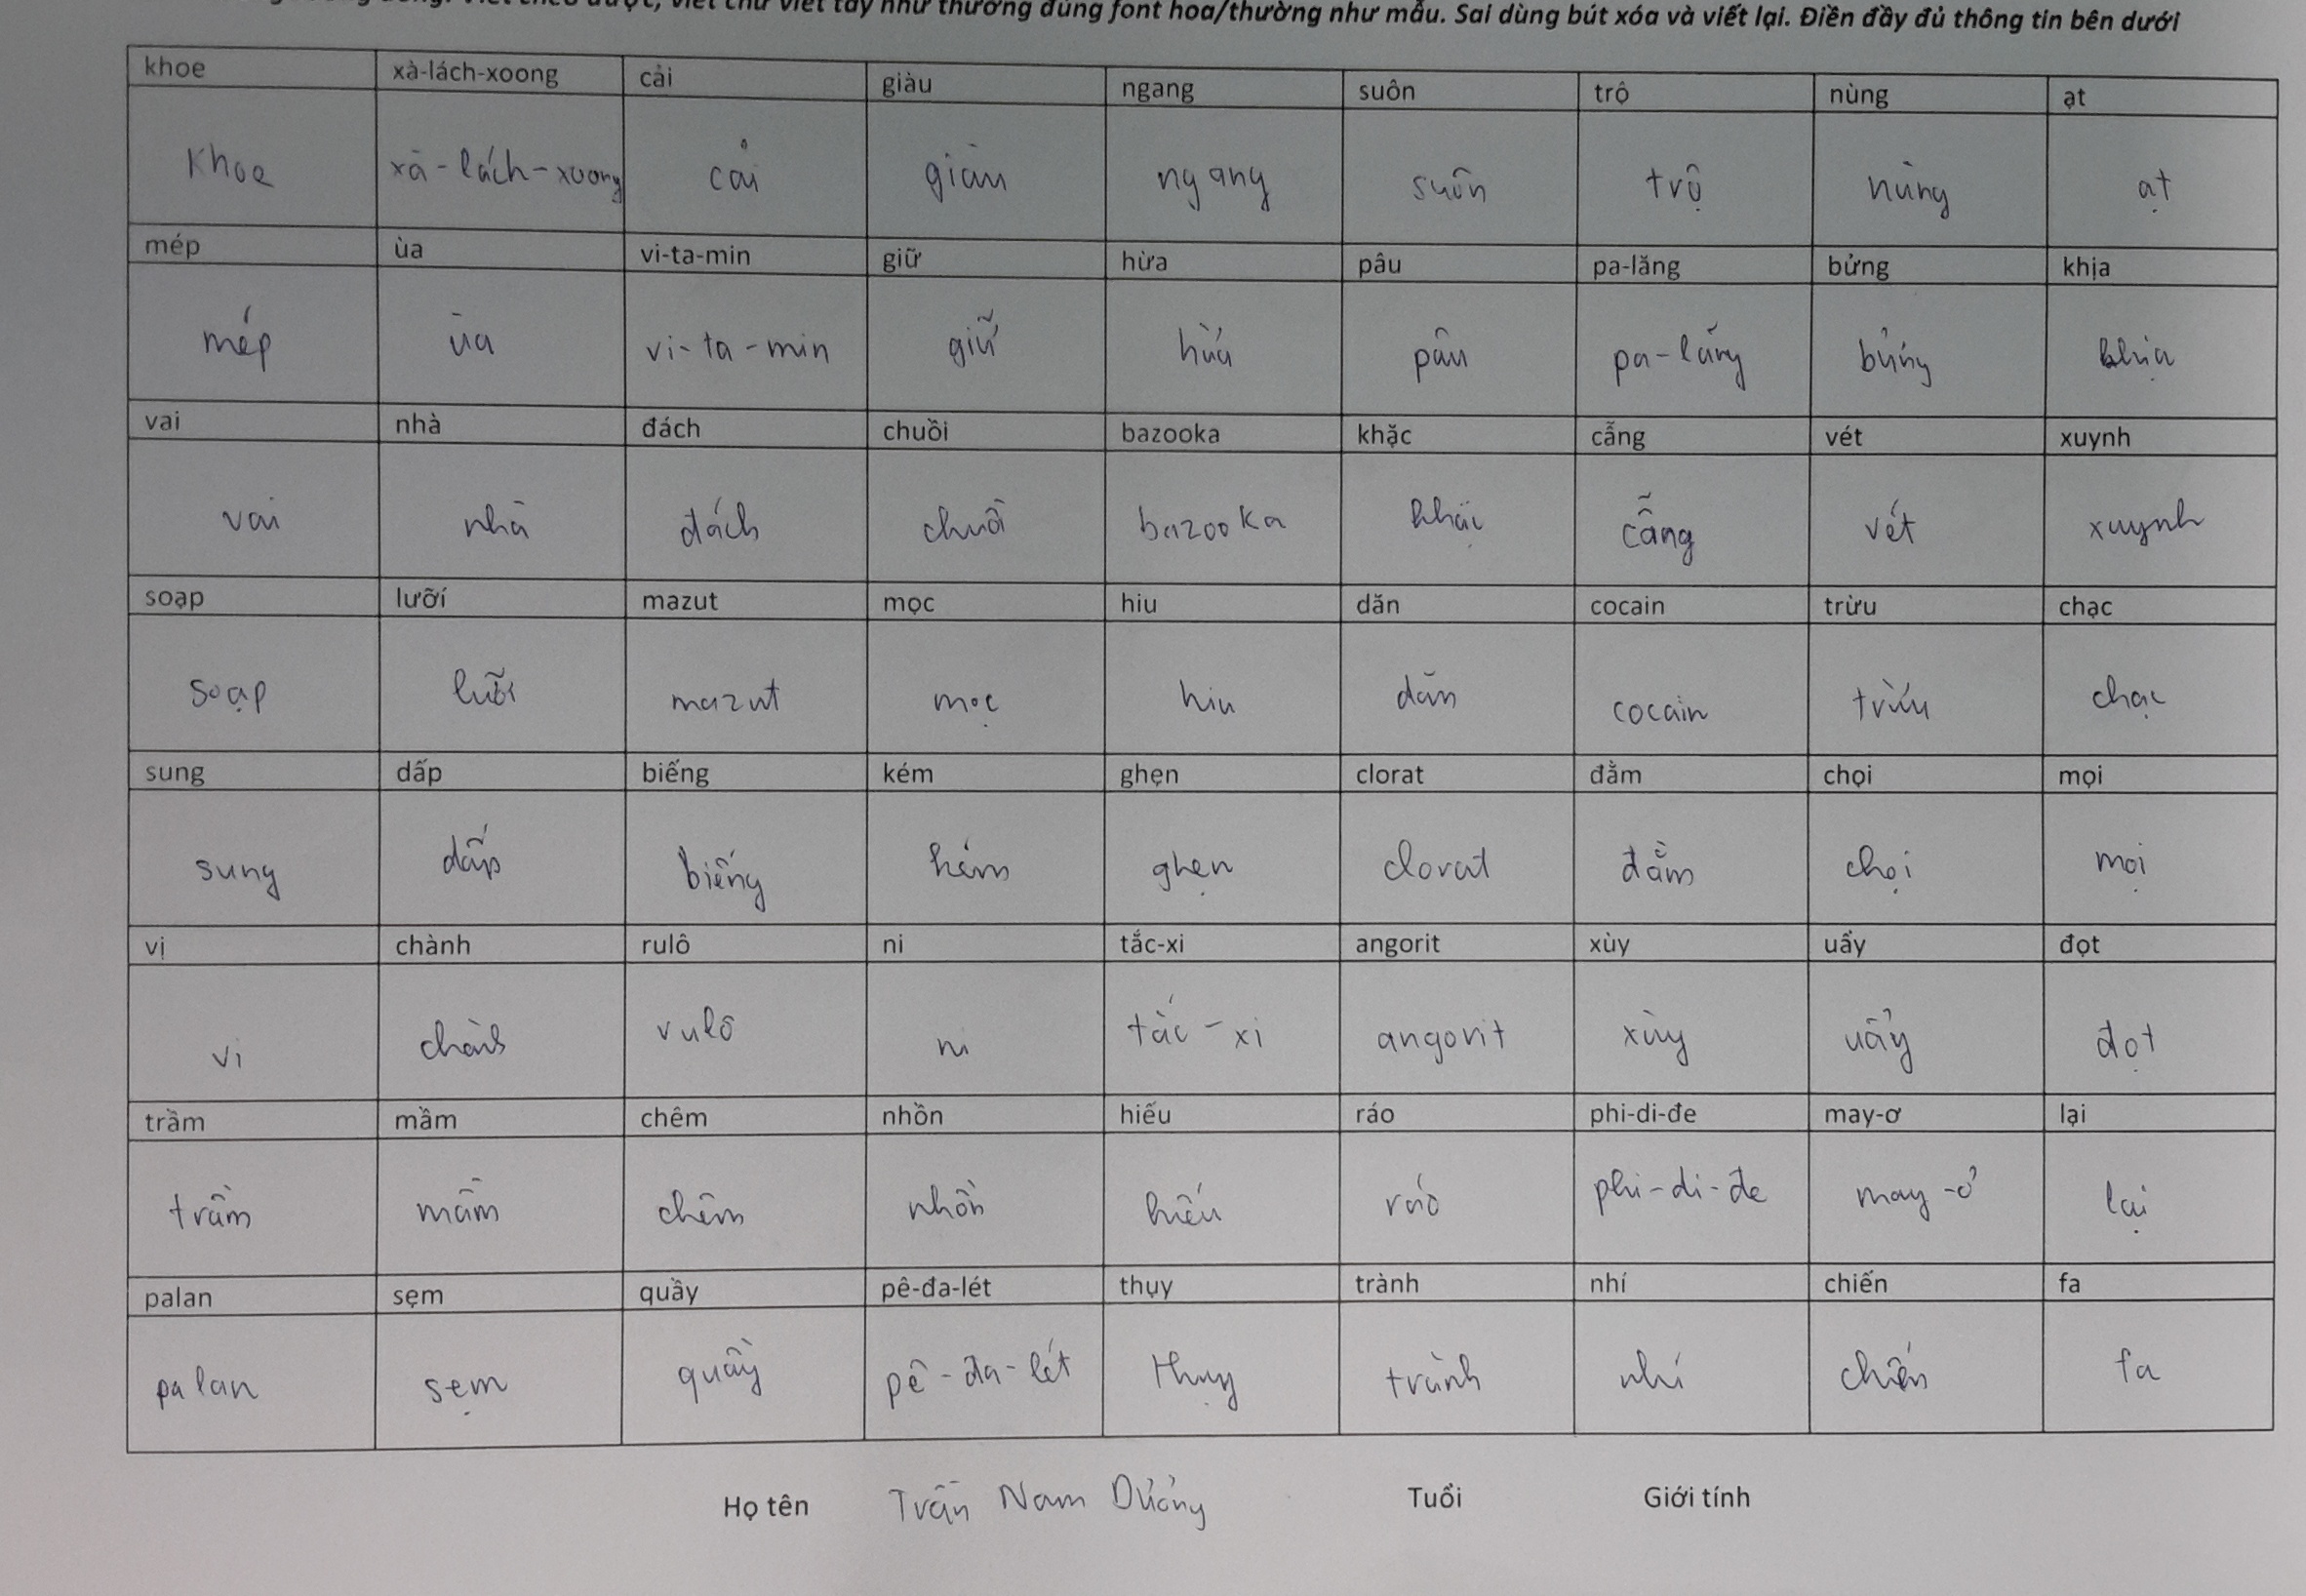 viết chữ viết tay như thường đúng font hoa/thường như mẫu. Sai dùng bút xóa và viết lại. Điền đầy đủ thông tin bên dưới
khoe xà-lách-xoong cải giàu ngang suôn trộ nùng ạt
Khoe xà-lách-xoong cải giàu ngang suôn trộ nùng ạt
mép ùa vi-ta-min giữ hừa pâu pa-lăng bửng khịa
mép ùa vi-ta-min giữ hừa pâu pa-lăng bửng khịa
vai nhà đách chuồi bazooka khặc cẵng vét xuynh
vai nhà đách chuồi bazooka khặc cẵng vét xuynh
soạp lưỡi mazut mọc hiu dăn cocain trừu chạc
soạp lưỡi mazut mọc hiu dăn cocain trừu chạc
sung dấp biếng kém ghẹn clorat đằm chọi mọi
sung dấp biếng kém ghẹn clorat đằm chọi mọi
vị chành rulô ni tắc-xi angorit xùy uẩy đọt
vi chành rulô ni tắc-xi angorit xùy uẩy đọt
trầm mầm chêm nhồn hiếu ráo phi-di-đe may-ơ lại
trầm mầm chêm nhồn hiếu ráo phi-di-đe may-ơ lại
palan sẹm quầy pê-đa-lét thụy trành nhí chiến fa
palan sẹm quầy pê-đa-lét thụy trành nhí chiến fa
Họ tên Trần Nam Dương Tuổi Giới tính